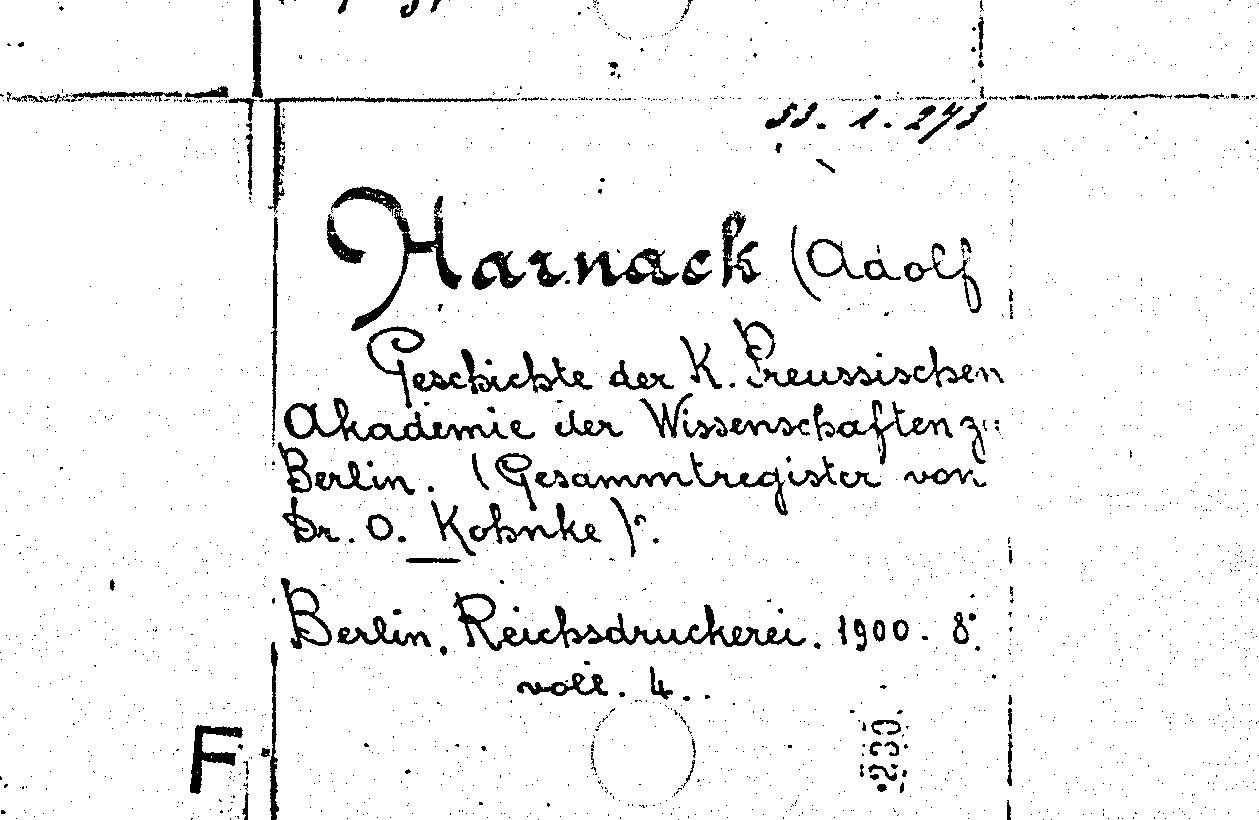 53. 1. 273
Harnack (Adolf
Geschichte der K. Preussischen
Akademie der Wissenschaften z.
Berlin. (Gesammtregister von
Dr. O. Kohnke).
Berlin, Reichsdruckerei. 1900. 8°.
voll. 4..
F